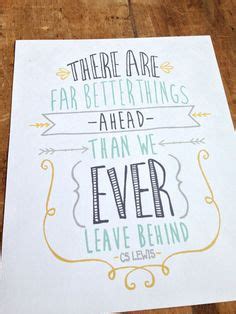 THERE ARE
FAR BETTER THINGS
-AHEAD-
THAN WE
EVER
LEAVE BEHIND
-CS LEWIS-